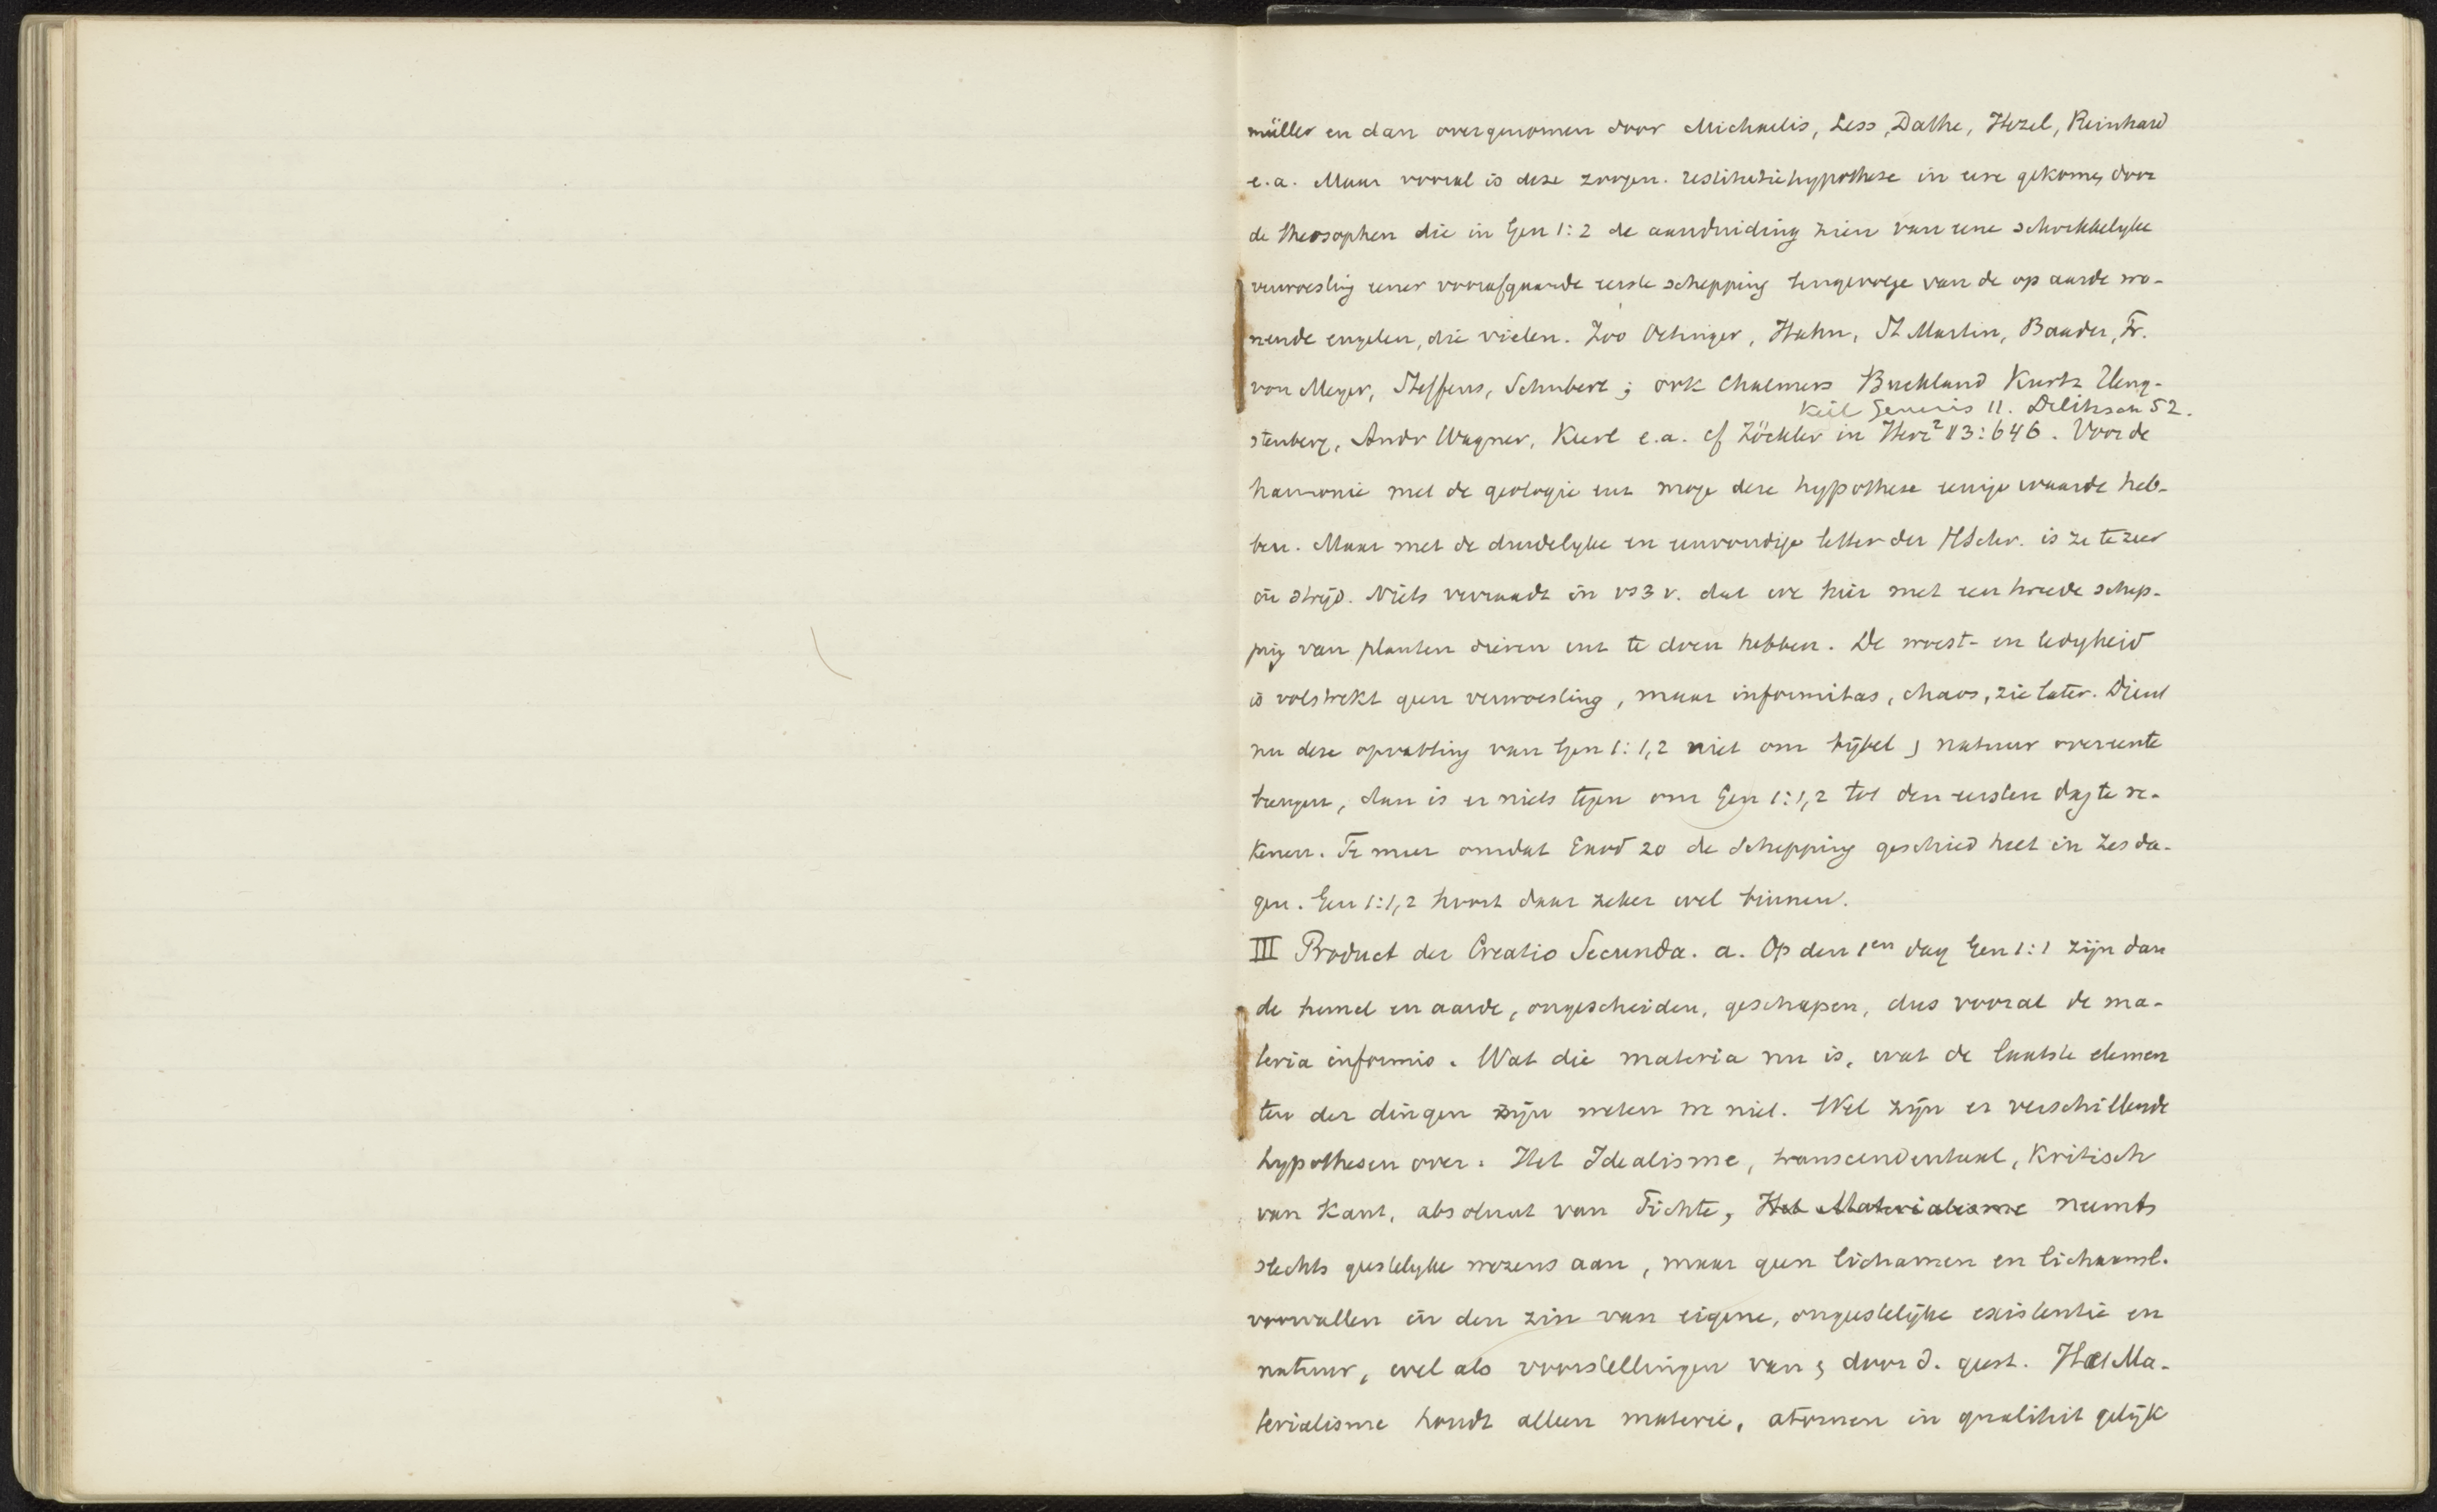 müller en dan overgenomen door Michaelis, Less, Dathe, Hezel, Reinhard
e.a. Maar vooral is deze zoogen. restitutiehypothese in eere gekomen door
de theosophen die in Gen 1:2 de aanduiding zien van eene schrikkelyke
verwoesting eener voorafgaande eerste schepping tengevolge van de op aarde wo-
nende engelen, die vielen. Zoo Oetinger, Hahn, St Martin, Baader, Fr.
von Meyer, Steffens, Schubert; ook Chalmers Buckland Kurtz Heng-
Keil Genesis 11. Delitzsch 52.
stenberg, Andr Wagner, Kurt e.a. cf Zöckler in Herz² 13:646. Voor de
harmonie met de geologie enz moge deze hypothese eenige waarde heb-
ben. Maar met de duidelyke en eenvoudige letter der HSchr. is ze te zeer
in strijd. Niets verraadt in vs 3 v. dat we hier met een tweede schep-
ping van planten dieren enz te doen hebben. De woest- en ledigheid
is volstrekt geen verwoesting, maar informitas, chaos, zie later. Dient
nu deze opvatting van Gen 1:1,2 niet om bijbel & natuur overeen te
brengen, dan is er niets tegen om Gen 1:1,2 tot den eersten dag te re-
kenen. Te meer omdat Exod 20 de schepping geschied heet in zes da-
gen. Gen 1:1,2 hoort daar zeker wel binnen.
III Product der Creatio Secunda. a. Op den 1en dag Gen 1:1 zijn dan
de hemel en aarde, ongescheiden, geschapen, dus vooral de ma-
teria informis. Wat die materia nu is, wat de laatste elemen
ten der dingen zijn weten we niet. Wel zijn er verschillende
hypothesen over. Het Idealisme, transcendentaal, kritisch
van Kant, absoluut van Fichte, Het Materialisme neemt
slechts geestelyke wezens aan, maar geen lichamen en lichaamsl.
voorvallen in den zin van eigene, ongeestelijke existentie en
natuur, wel als voorstellingen van & door d. geest. Het Ma-
terialisme houdt alleen materie, atomen in qualiteit gelijk